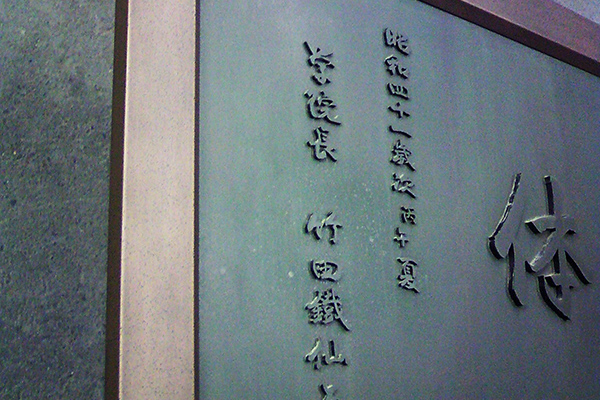 昭和四十一歳次丙午夏
学院長 竹田鐵仙